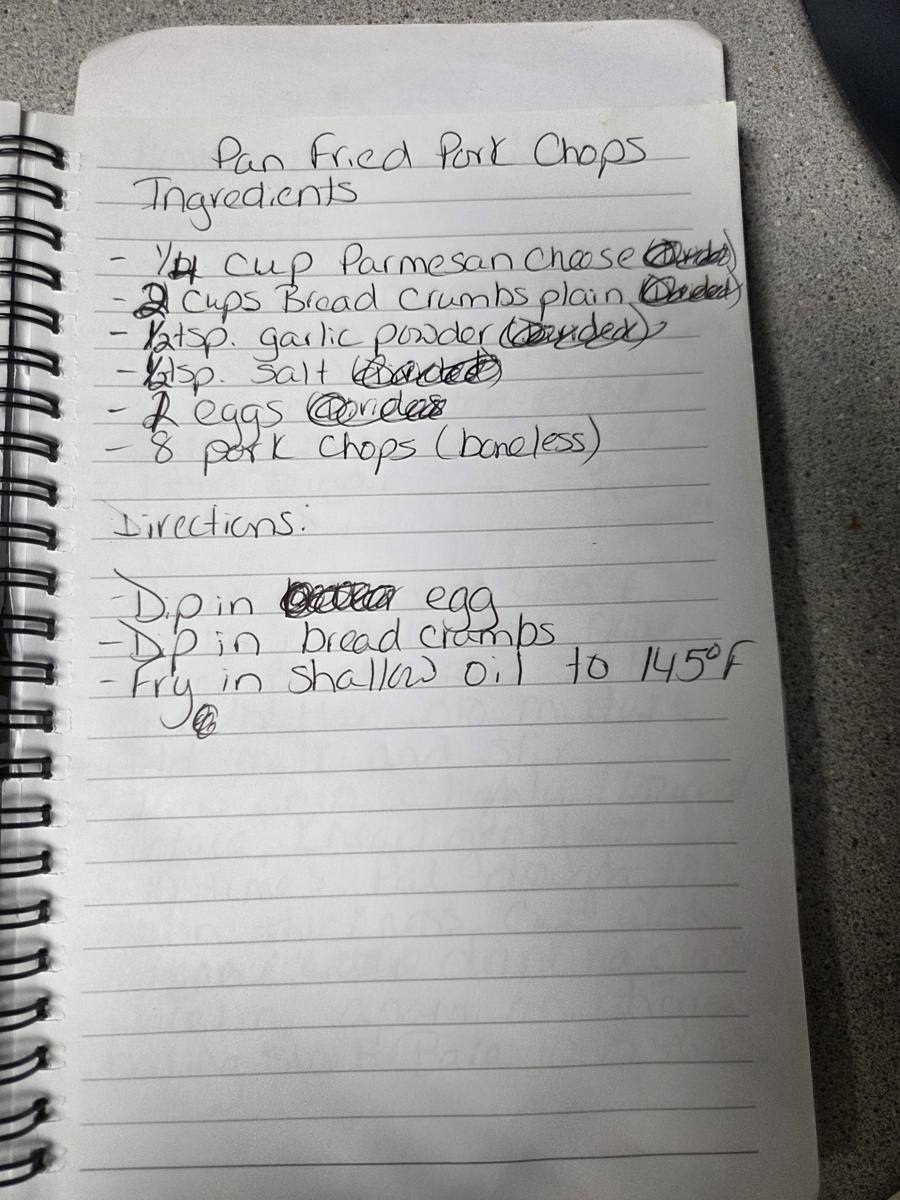 Pan Fried Pork Chops
Ingredients
- 1/4 cup Parmesan cheese
- 2 cups Bread crumbs plain
- 1/2 tsp. garlic powder
- 1/2 tsp. salt
- 2 eggs
- 8 pork chops (boneless)
Directions:
- Dip in egg
- Dip in bread crumbs
- Fry in shallow oil to 145°F